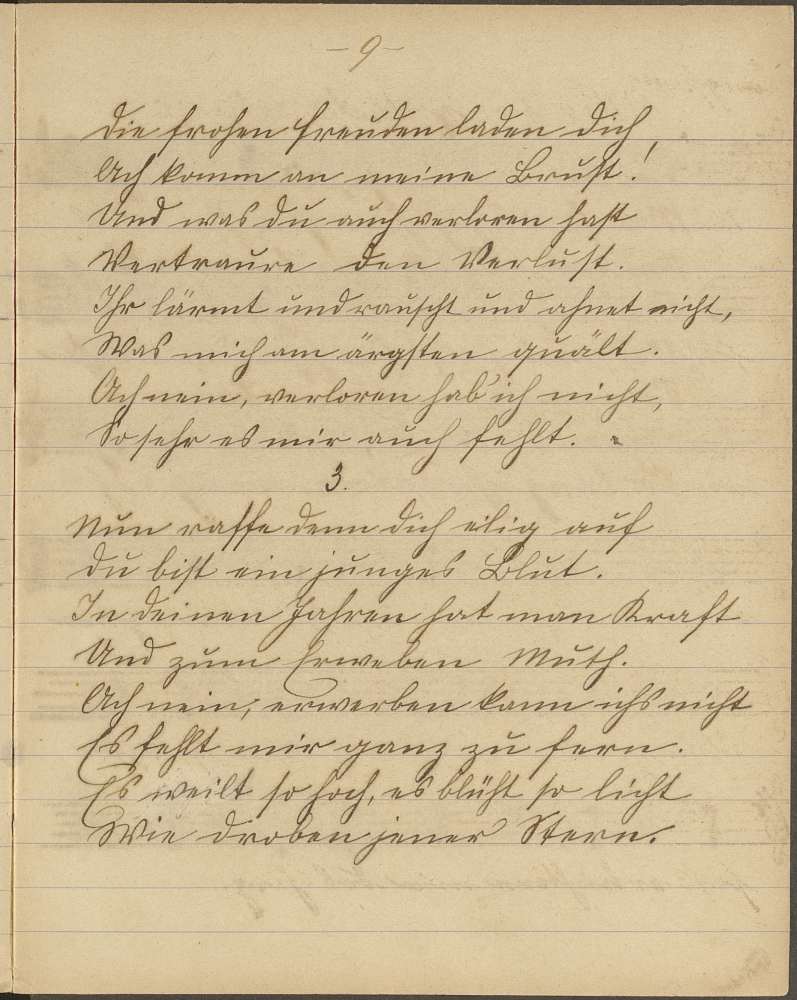 - 9 -
Die frohen Freuden laden dich,
Ach komm an meine Brust!
Und was du auch verloren hast
Vertraure den Verlust.
Ihr lärmt und rauscht und ahnet nicht,
Was mich am ärgsten quält.
Ach nein, verloren hab' ich nicht,
So sehr es mir auch fehlt.
3.
Nun raffe denn dich eilig auf
Du bist ein junges Blut.
In deinen Jahren hat man Kraft
Und zum Erweben Muth.
Ach nein, erwerben kann ichs nicht
Es fehlt mir ganz zu fern.
Es weilt so hoch, es blüht so licht
Wie droben jener Stern.